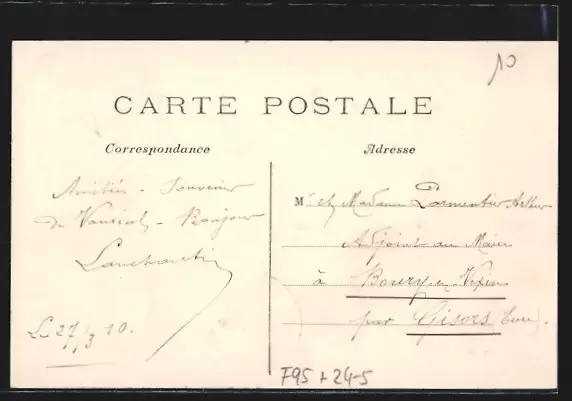 10
CARTE POSTALE
Correspondance
Adresse
Amitiés - Souvenir
de - Bonjour
Le 27/3 10.
M r et Madame Parmentier Arthur
Adjoint au Maire
à Boury-en-Vexin
par Gisors (Eure).
F95 + 24-5